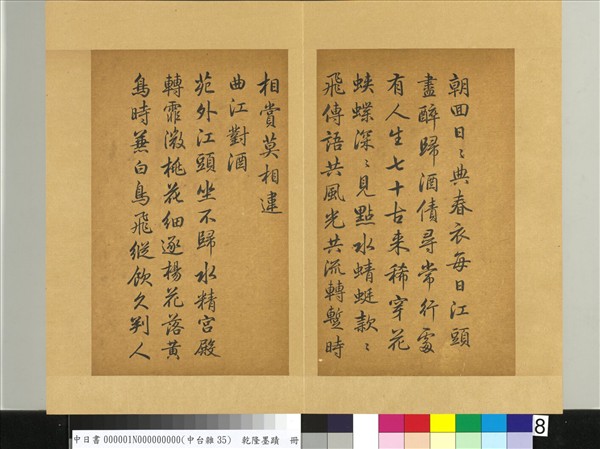 朝回日〻典春衣每日江頭
盡醉歸酒債尋常行處
有人生七十古来稀穿花
蛺蝶深〻見點水蜻蜓款〻
飛傳語共風光共流轉暫時
相賞莫相違
曲江對酒
苑外江頭坐不歸水精宮殿
轉霏微桃花細逐楊花落黃
鳥時兼白鳥飛縱飲久判人
中日書 000001N000000000(中台雜35) 乾隆墨蹟 冊
8